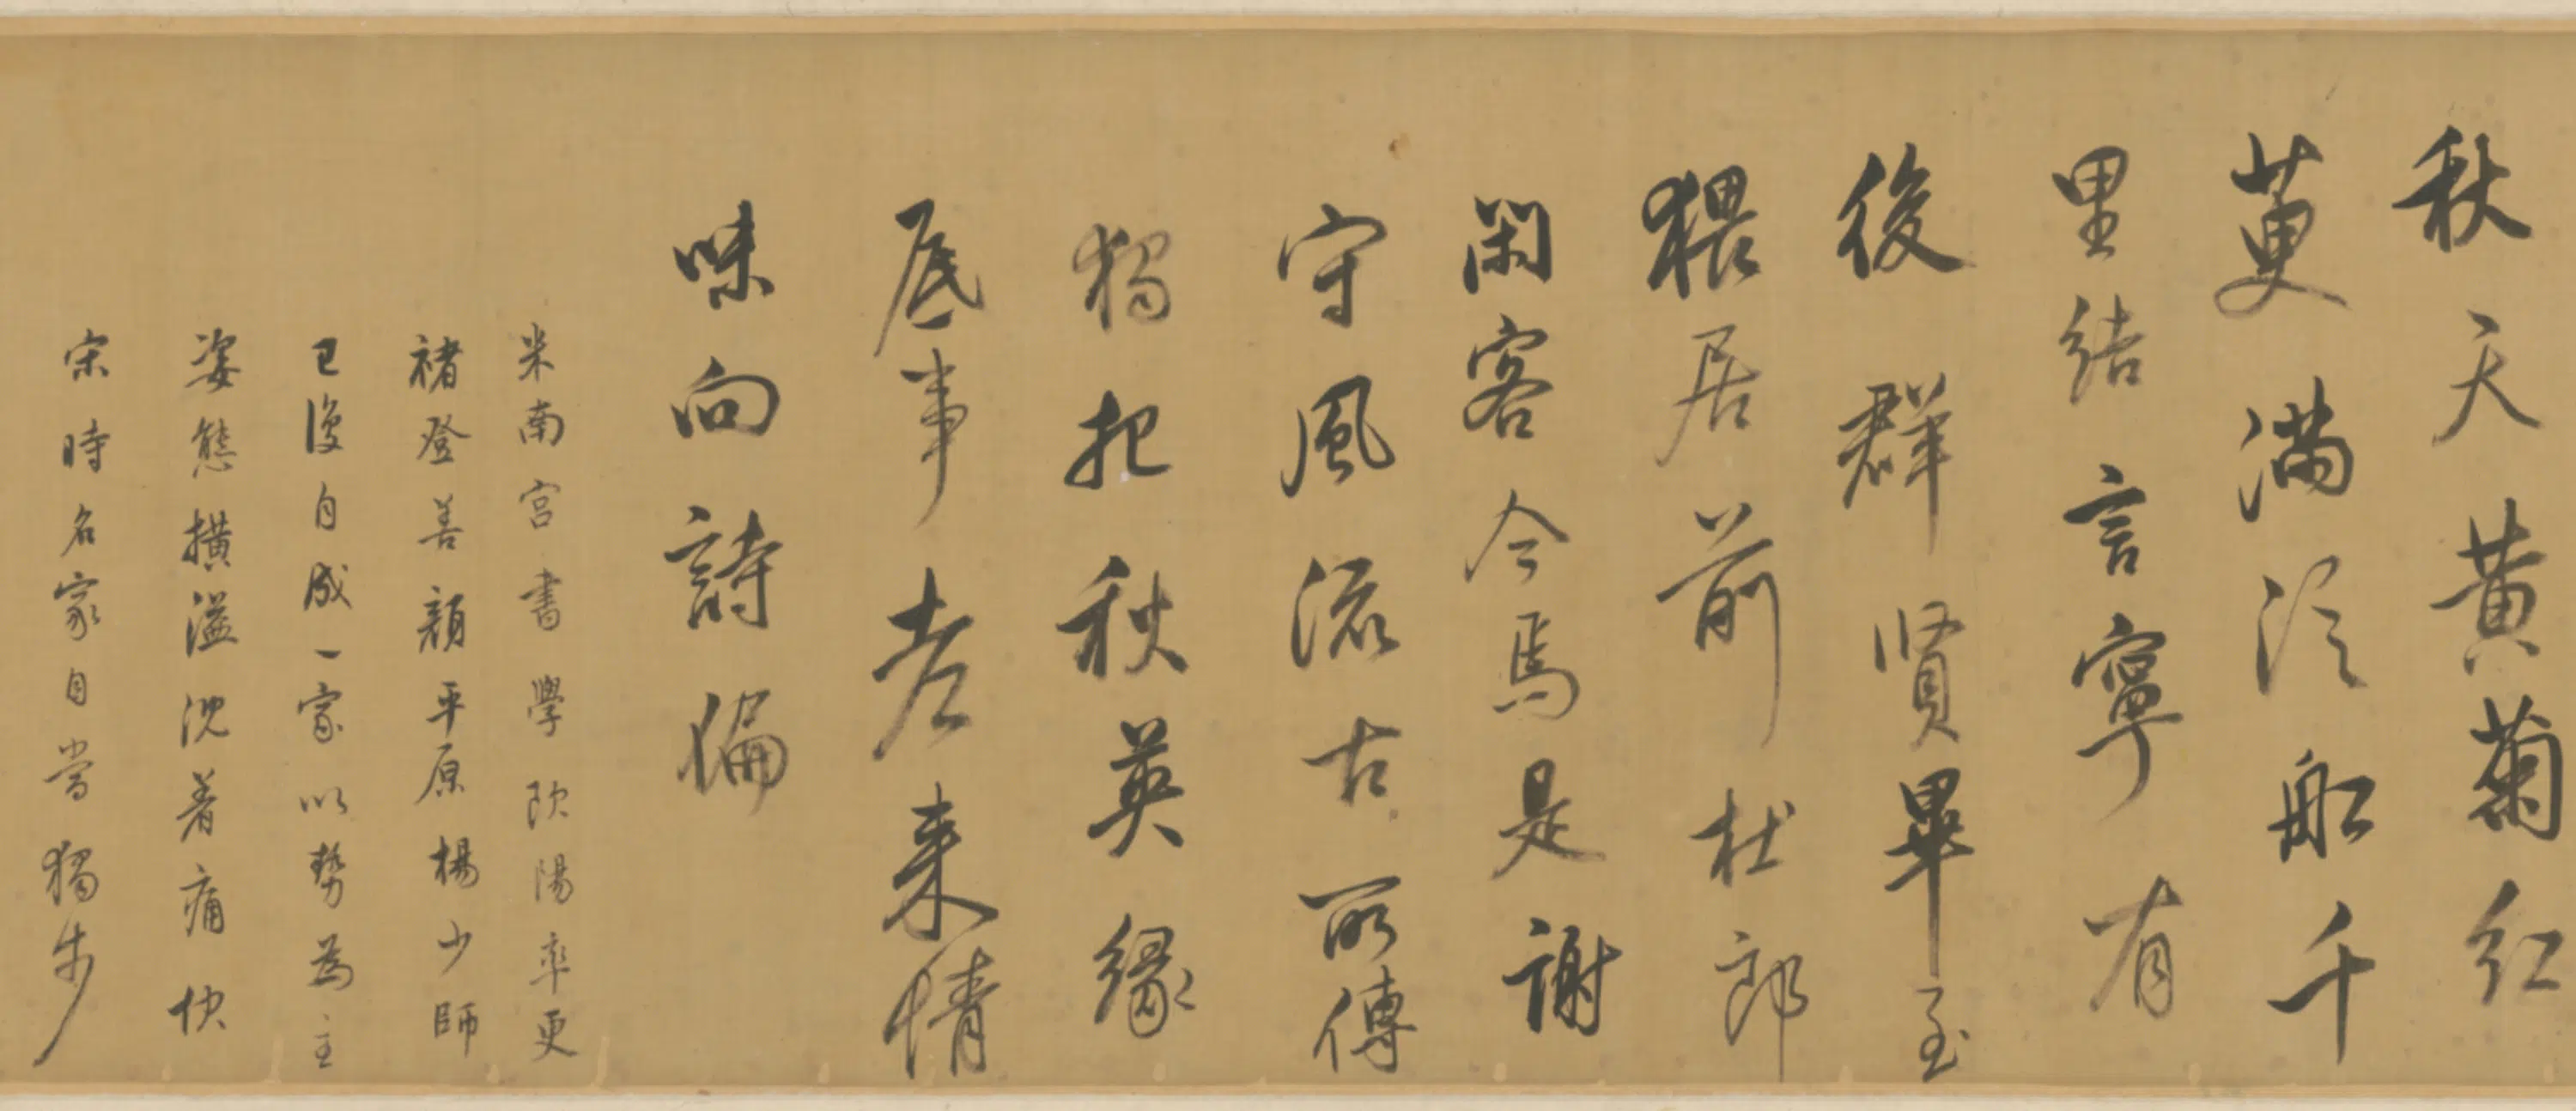 秋天黃菊紅
萸滿泛船千
里結言寧有
後群賢畢至
猥居前杜郎
閑客今焉是謝
守風流古所傳
獨把秋英緣
底事老来情
味向詩偏
米南宮書學歐陽率更
褚登善顏平原楊少師
已復自成一家以勢為主
姿態橫溢沈着痛快
宋時名家自當獨步